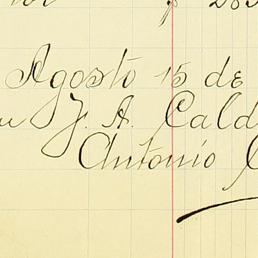 Agosto 15 de
J. A. Cald
Antonio C